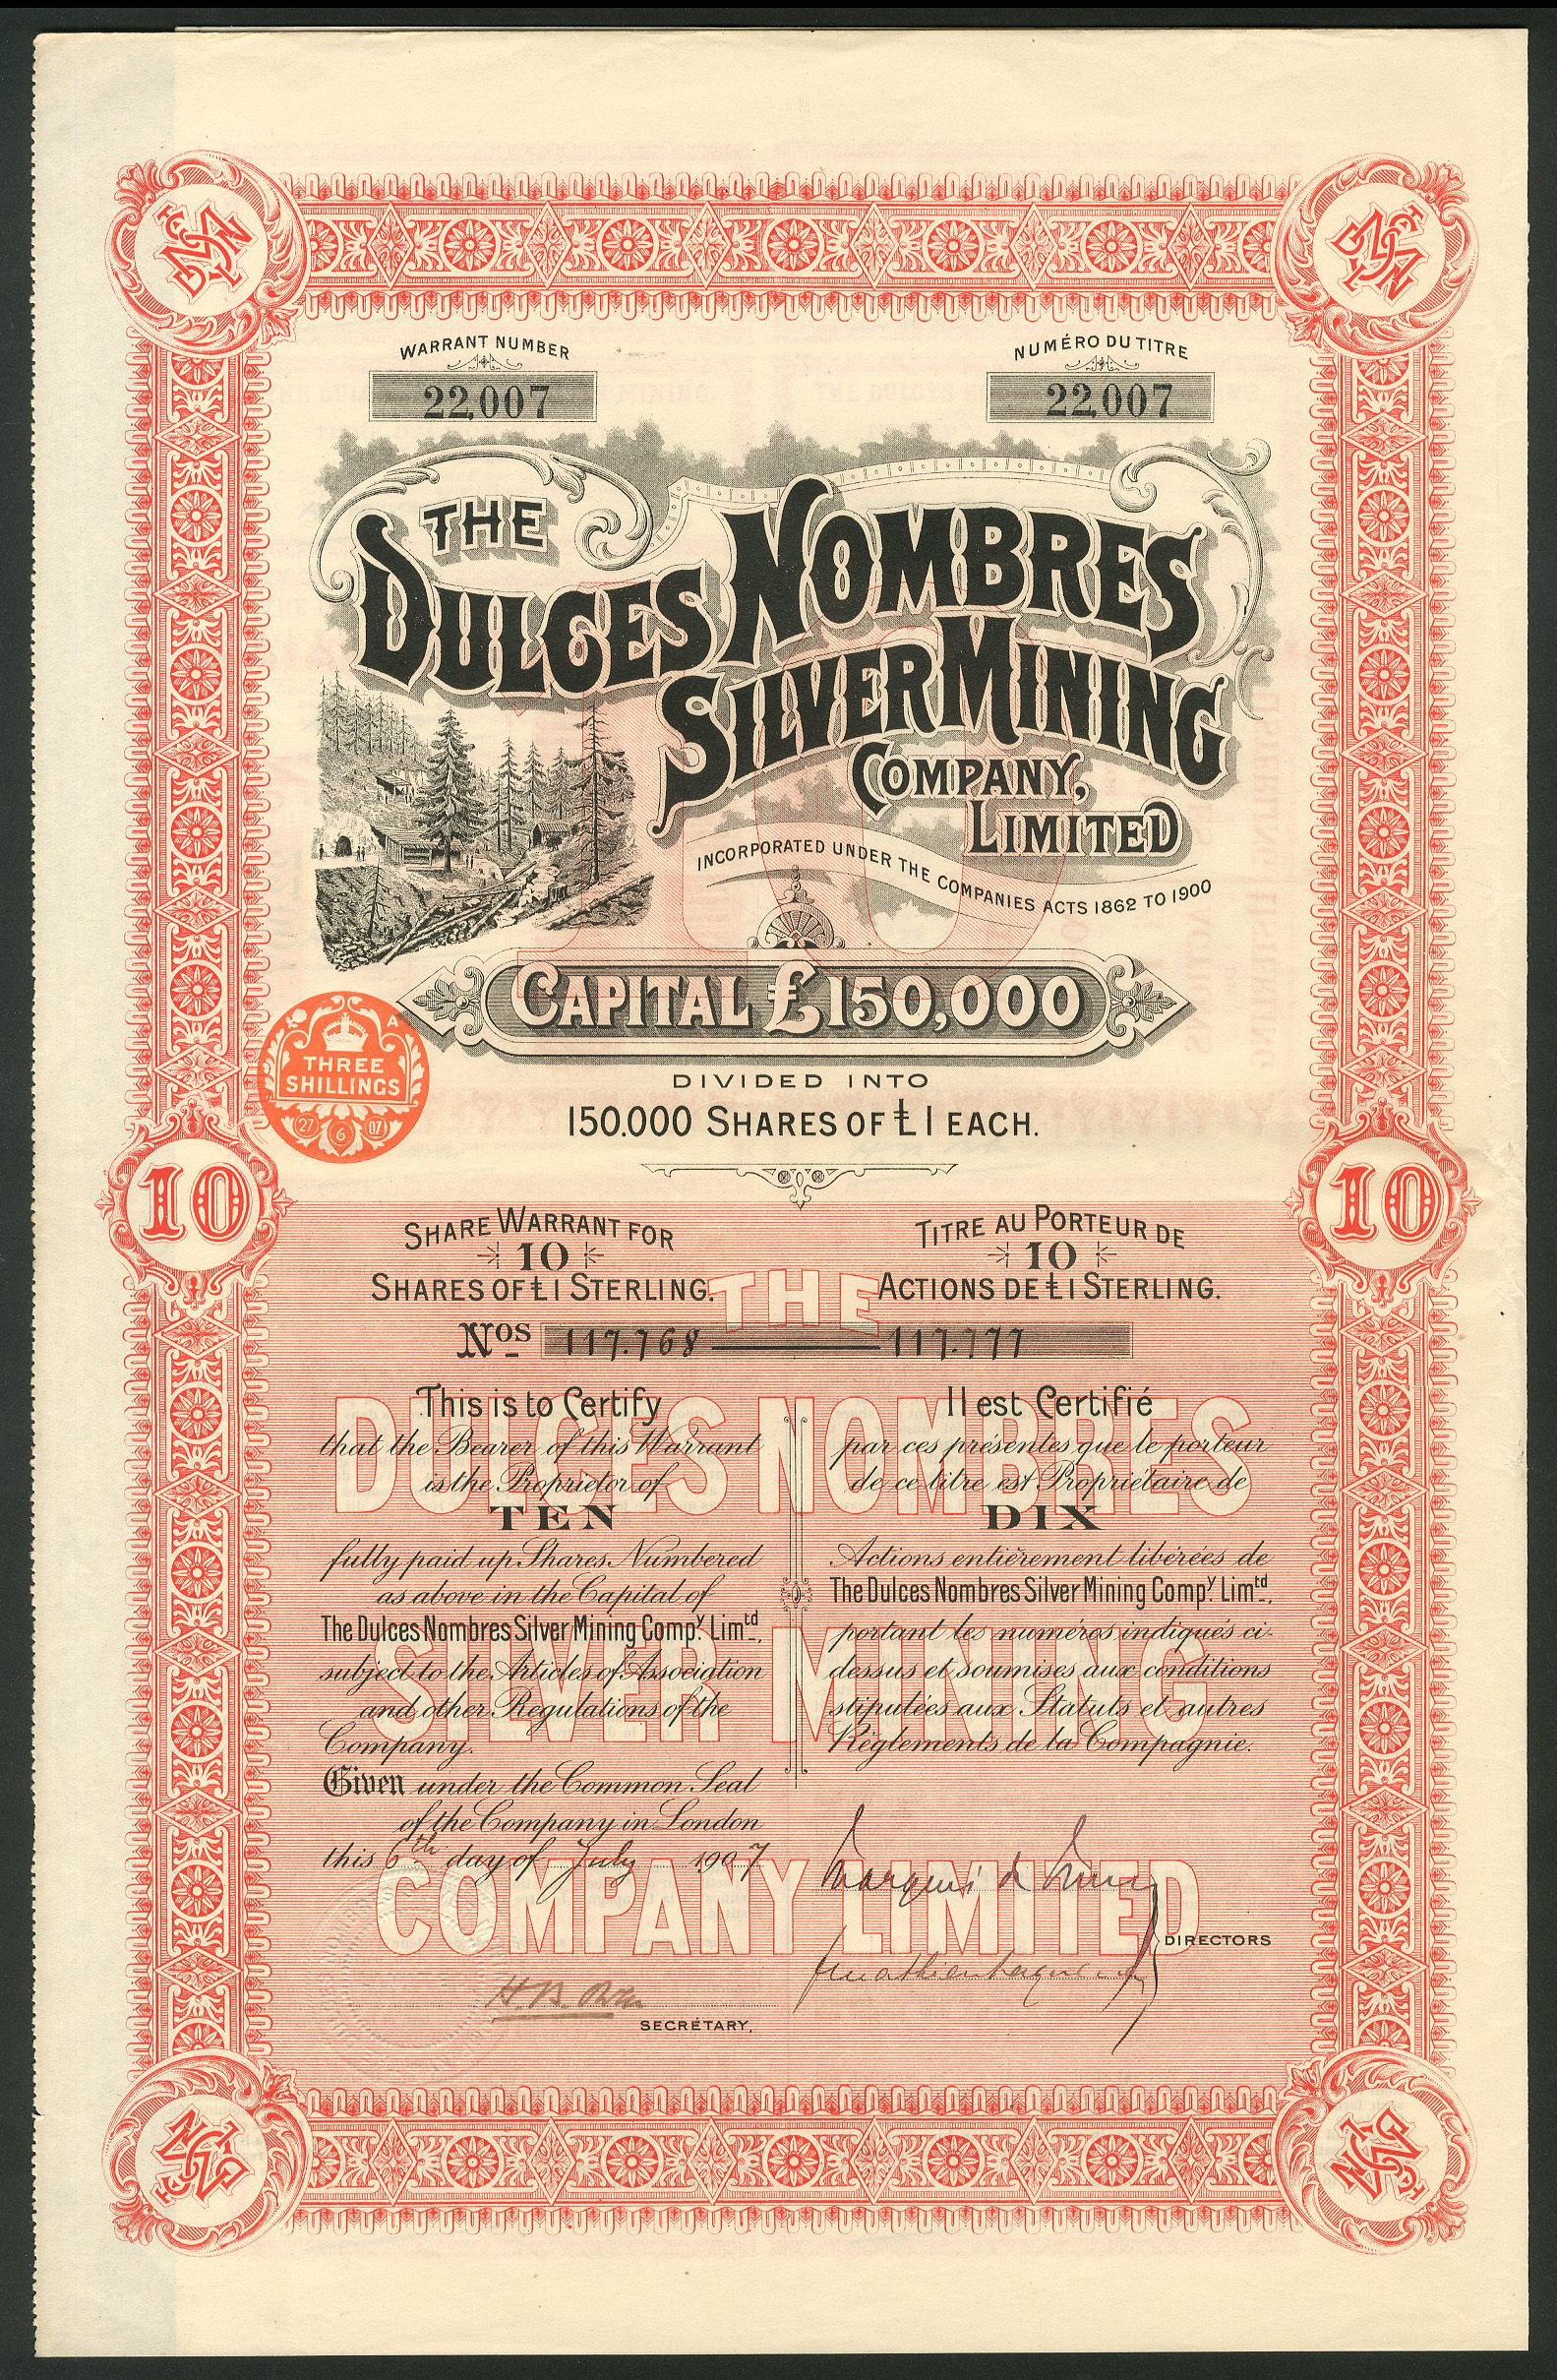 WARRANT NUMBER
22,007
NUMÉRO DU TITRE
22,007
THE
DULCES NOMBRES
SILVER MINING
COMPANY,
LIMITED
INCORPORATED UNDER THE COMPANIES ACTS 1862 TO 1900
CAPITAL £150,000
THREE
SHILLINGS
27 6 07
DIVIDED INTO
150.000 SHARES OF £1 EACH.
10
10
SHARE WARRANT FOR
10
SHARES OF £1 STERLING.
TITRE AU PORTEUR DE
10
ACTIONS DE £1 STERLING.
Nos 117.768 — 117.777
THE
DULCES NOMBRES
SILVER MINING
COMPANY LIMITED
This is to Certify
that the Bearer of this Warrant
is the Proprietor of
TEN
fully paid up Shares Numbered
as above in the Capital of
The Dulces Nombres Silver Mining Compy. Limtd.,
subject to the Articles of Association
and other Regulations of the
Company.
Given under the Common Seal
of the Company in London
this 6th day of July 1907
Il est Certifié
par ces présentes que le porteur
de ce titre est Propriétaire de
DIX
Actions entièrement libérées de
The Dulces Nombres Silver Mining Compy. Limtd.,
portant les numéros indiqués ci-
dessus et soumises aux conditions
stipulées aux Statuts et autres
Règlements de la Compagnie.
DIRECTORS
SECRETARY.